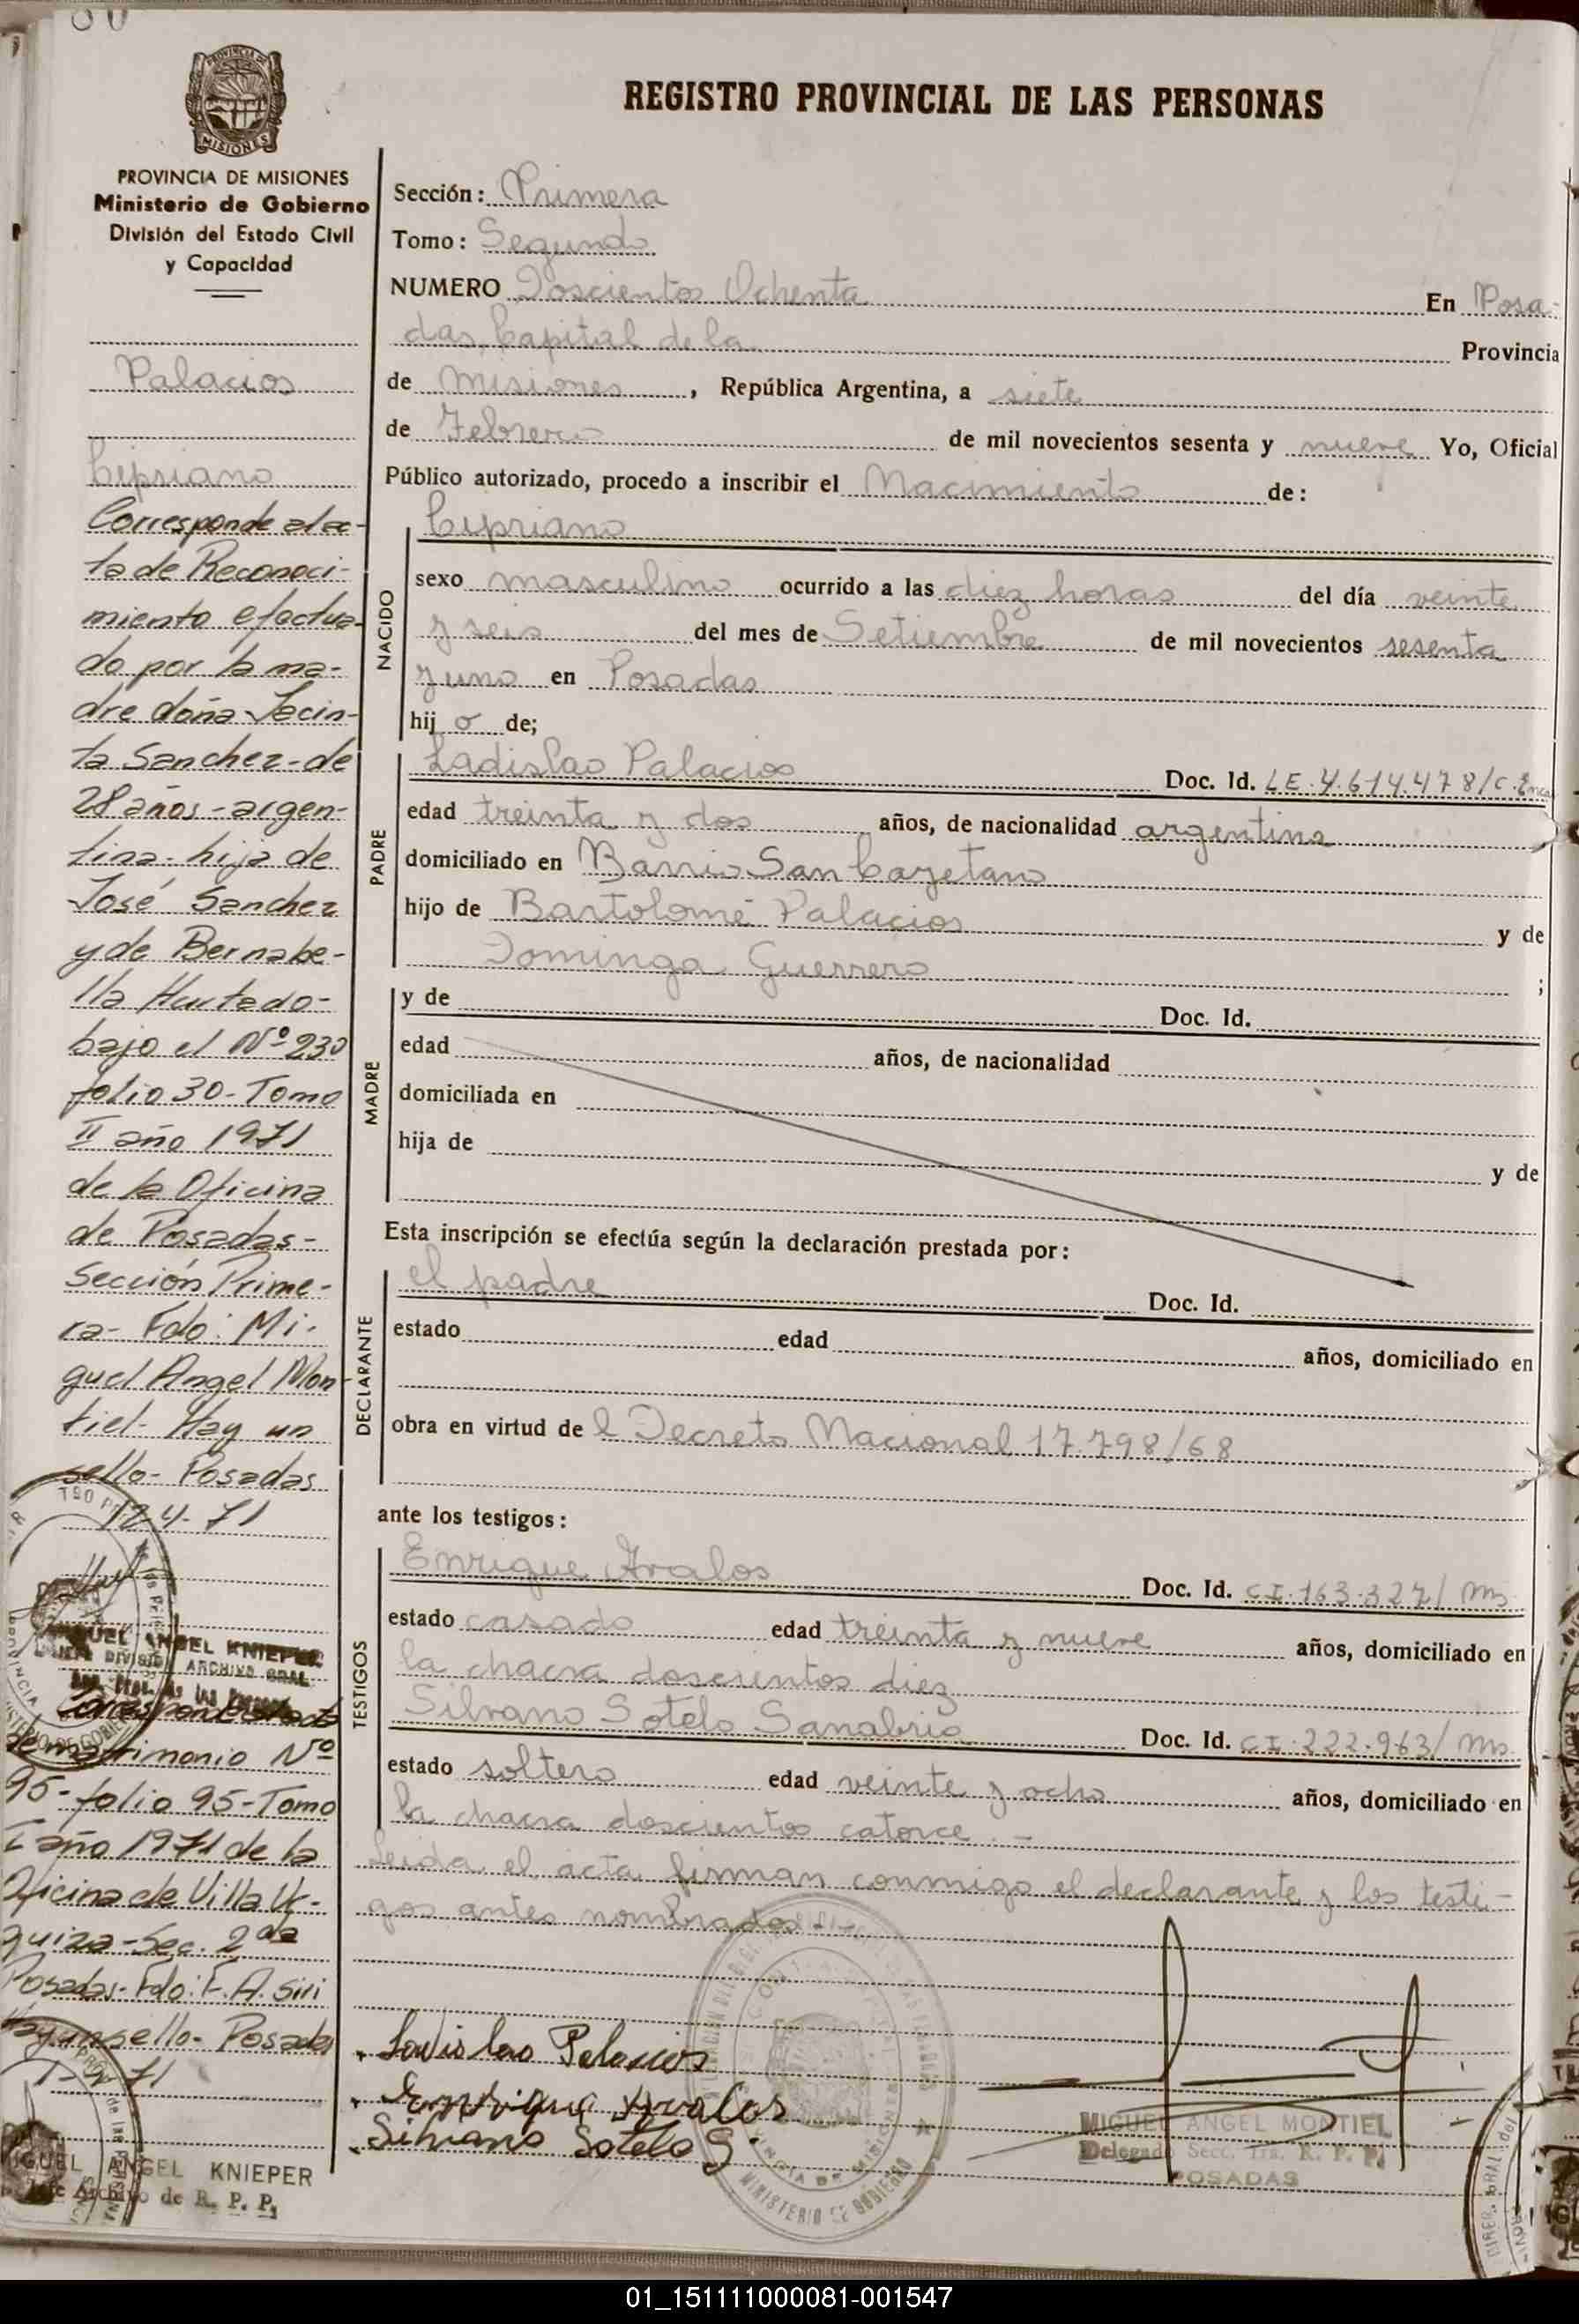 80
PROVINCIA DE
MISIONES
PROVINCIA DE MISIONES
Ministerio de Gobierno
División del Estado Civil
y Capacidad
Palacios
Cipriano
Corresponde al ac-
ta de Reconoci-
miento efectua-
do por la ma-
dre doña Jacin-
ta Sanchez-de
28 años-argen-
tina-hija de
José Sanchez
y de Bernabe-
lla Hurtado-
bajo el Nº 230
folio 30-Tomo
II año 1971
de la Oficina
de Posadas-
Sección Prime-
ra- Fdo: Mi-
guel Angel Mon-
tiel- Hay un
sello- Posadas
12-4-71
MIGUEL ANGEL KNIEPER
JEFE DIVISION ARCHIVO GRAL.
Reg. Prov. de las Personas
Corresponde al acta
de matrimonio Nº
95-folio 95-Tomo
I año 1971 de la
Oficina de Villa Ur-
quiza-Sec. 2da
Posadas-Fdo: F. A. Siri
Hay un sello- Posadas
71
MIGUEL ANGEL KNIEPER
Jefe Archivo de R. P. P.
REGISTRO PROVINCIAL DE LAS PERSONAS
Sección: Primera
Tomo: Segundo
NUMERO Doscientos Ochenta En Posa-
das, Capital de la Provincia
de Misiones, República Argentina, a siete
de Febrero de mil novecientos sesenta y nueve Yo, Oficial
Público autorizado, procedo a inscribir el Nacimiento de:
NACIDO
Cipriano
sexo masculino ocurrido a las diez horas del día veinte
y seis del mes de Setiembre de mil novecientos sesenta
y uno en Posadas
hij o de;
PADRE
Ladislao Palacios Doc. Id. LE. 4.614.478/C.Enea
edad treinta y dos años, de nacionalidad argentina
domiciliado en Barrio San Cayetano
hijo de Bartolomé Palacios y de
Dominga Guerrero ;
MADRE
y de Doc. Id.
edad años, de nacionalidad
domiciliada en
hija de y de
Esta inscripción se efectúa según la declaración prestada por:
DECLARANTE
el padre Doc. Id.
estado edad años, domiciliado en
obra en virtud de l Decreto Nacional 17.798/68
ante los testigos:
TESTIGOS
Enrique Avalos Doc. Id. CI. 163.327/ Ms
estado casado edad treinta y nueve años, domiciliado en
la chacra doscientos diez
Silvano Sotelo Sanabria Doc. Id. CI. 222.963/ Ms
estado soltero edad veinte y ocho años, domiciliado en
la chacra doscientos catorce.-
Leida el acta firman conmigo el declarante y los testi-
gos antes nombrados
Ladislao Palacios
Enrrique Avalos
Silvano Sotelo S.
MIGUEL ANGEL MONTIEL
Delegado Secc. 1ra. R. P. P.
POSADAS
MINISTERIO DE GOBIERNO
01_151111000081-001547